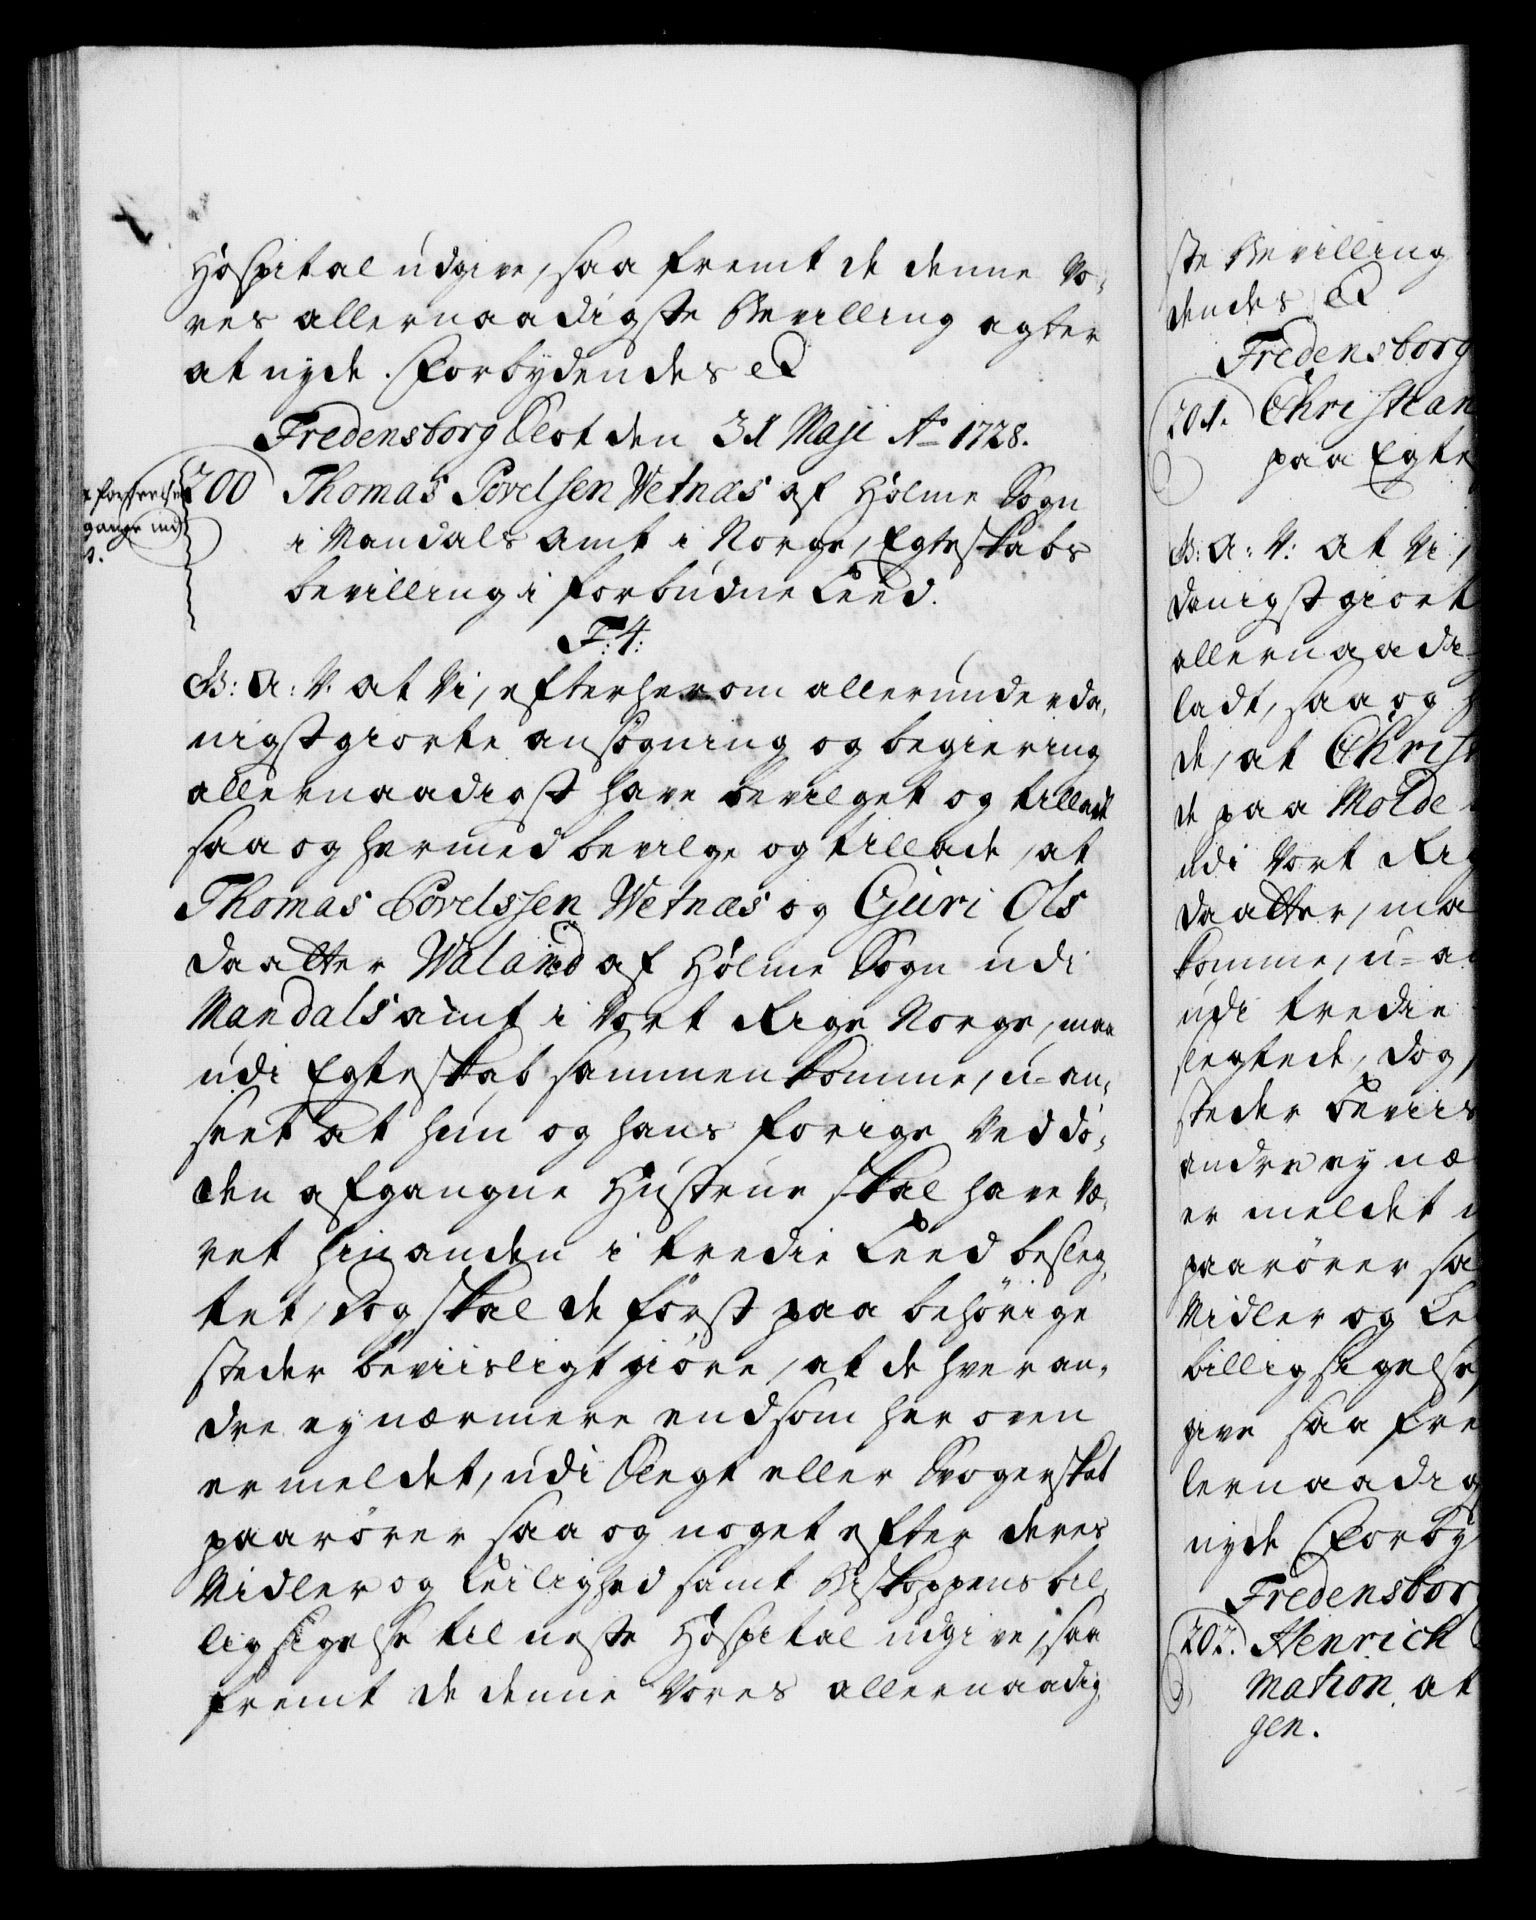 Hospital udgive, saa fremt de denne Vo-
res allernaadigste Bevilling agter
at nyde. Forbydendes etc
Fredensborg Slot den 31 Maji Ao 1728.
200 Thomas Povelsen Vetnæs af Holme Sogn
i Mandals Amt i Norge, Egteskabs
bevilling i forbudne Leed.
F: 4:
G: A: V: at Vi, efter herom allerunderda-
nigst giorte ansøgning og begiering
allernaadigst have bevilget og tilladt
saa og hermed bevilge og tillade, at
Thomas Povelssen Wetnæs og Guri Ols
daatter Waland af Holme Sogn udi
Mandals amt i Vort Rige Norge, maa
udi Egteskab sammenkomme, u-an-
seet at hun og hans forige ved dø-
den afgangne Hustrue skal have væ-
ret hinanden i tredie Leed besleg-
tet, Dog skal de først paa behørige
steder beviisligt giøre, at de hveran-
dre ey nærmere end som her oven
er meldet, udi Slegt eller Svogerskab
paarører saa og noget efter deres
Midler og Leilighed samt Biskoppens bil-
ligsigelse til neste Hospital udgive, saa
fremt de denne Vores allernaadig-
ste Bevilling
dendes etc
Fredensborg
201. Christian
paa Egte
G: A: V: at Vi,
danigst giort
allernaadi-
ladt, saa og h
de, at Christ
de paa Molde
udi Vort Rig
daatter, ma
komme, u-a
udi tredie
slegtede, dog,
steder beviis
andre ey næ
er meldet
paarører sa
Midler og Le
billigsigelse
give saa fre
lernaadig
nyde Forby
Fredensbor
202. Henrich
mation at
gen.